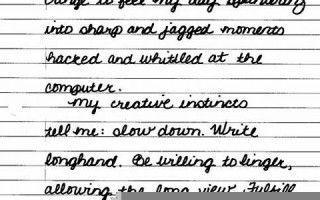 to feel my day splintering
into sharp and jagged moments
hacked and whittled at the
computer.
my creative instincts
tell me: slow down. Write
longhand. Be willing to linger,
allowing the long view. Fulfill